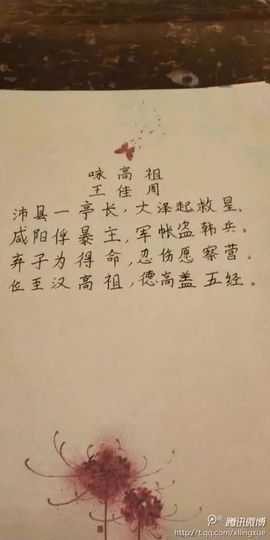 咏高祖
王佳周
沛县一亭长，大泽起救星。
咸阳俘暴主，军帐盗韩兵。
弃子为得命，忍伤愿察营。
位至汉高祖，德高盖五经。
腾讯微博
http://t.qq.com/xilingxue